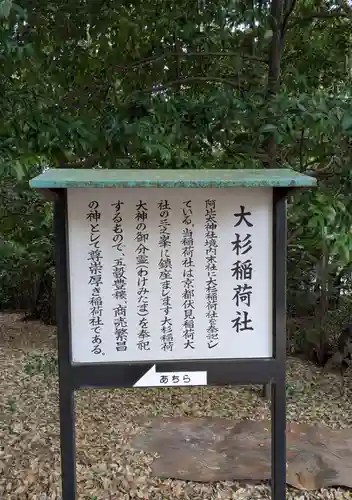 大杉稲荷社
阿比太神社境内末社に大杉稲荷社を奉祀し
ている。当稲荷社は京都伏見稲荷大
社の三之峯に鎮座まします大杉
大神の御分霊(わけみたま)を奉祀
するもので、五穀豊穣、商売繁昌
の神として尊崇厚き稲荷社である。
あちら